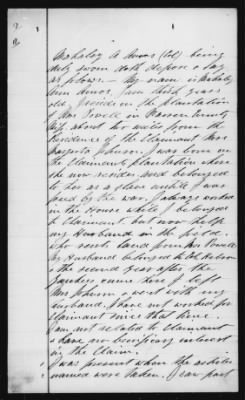 Mahaley A Amos (Col) being
duly sworn doth depose & say
as follows. — My name is Mahaley
Ann Amos, I am thirty years
old, I reside on the plantation
of Mrs Powell in Warren County
Miss about two miles from the
residence of the Claimant Mrs
Johnson. I was born on
the Claimants plantation where
she now resides and belonged
to her as a slave until I was
freed by the war. I always worked
in the House while I belonged
to Claimant but now help
my Husband in the field.
who rents land from Mrs Powell
my Husband belonged to
& the second year after the
Yankees came here I left
Mrs Johnson & went with my
husband. I have not worked for
Claimant since that time.
I am not related to Claimant
& have no beneficiary interest
in the Claim.
I was present when the articles
named were taken. I saw part